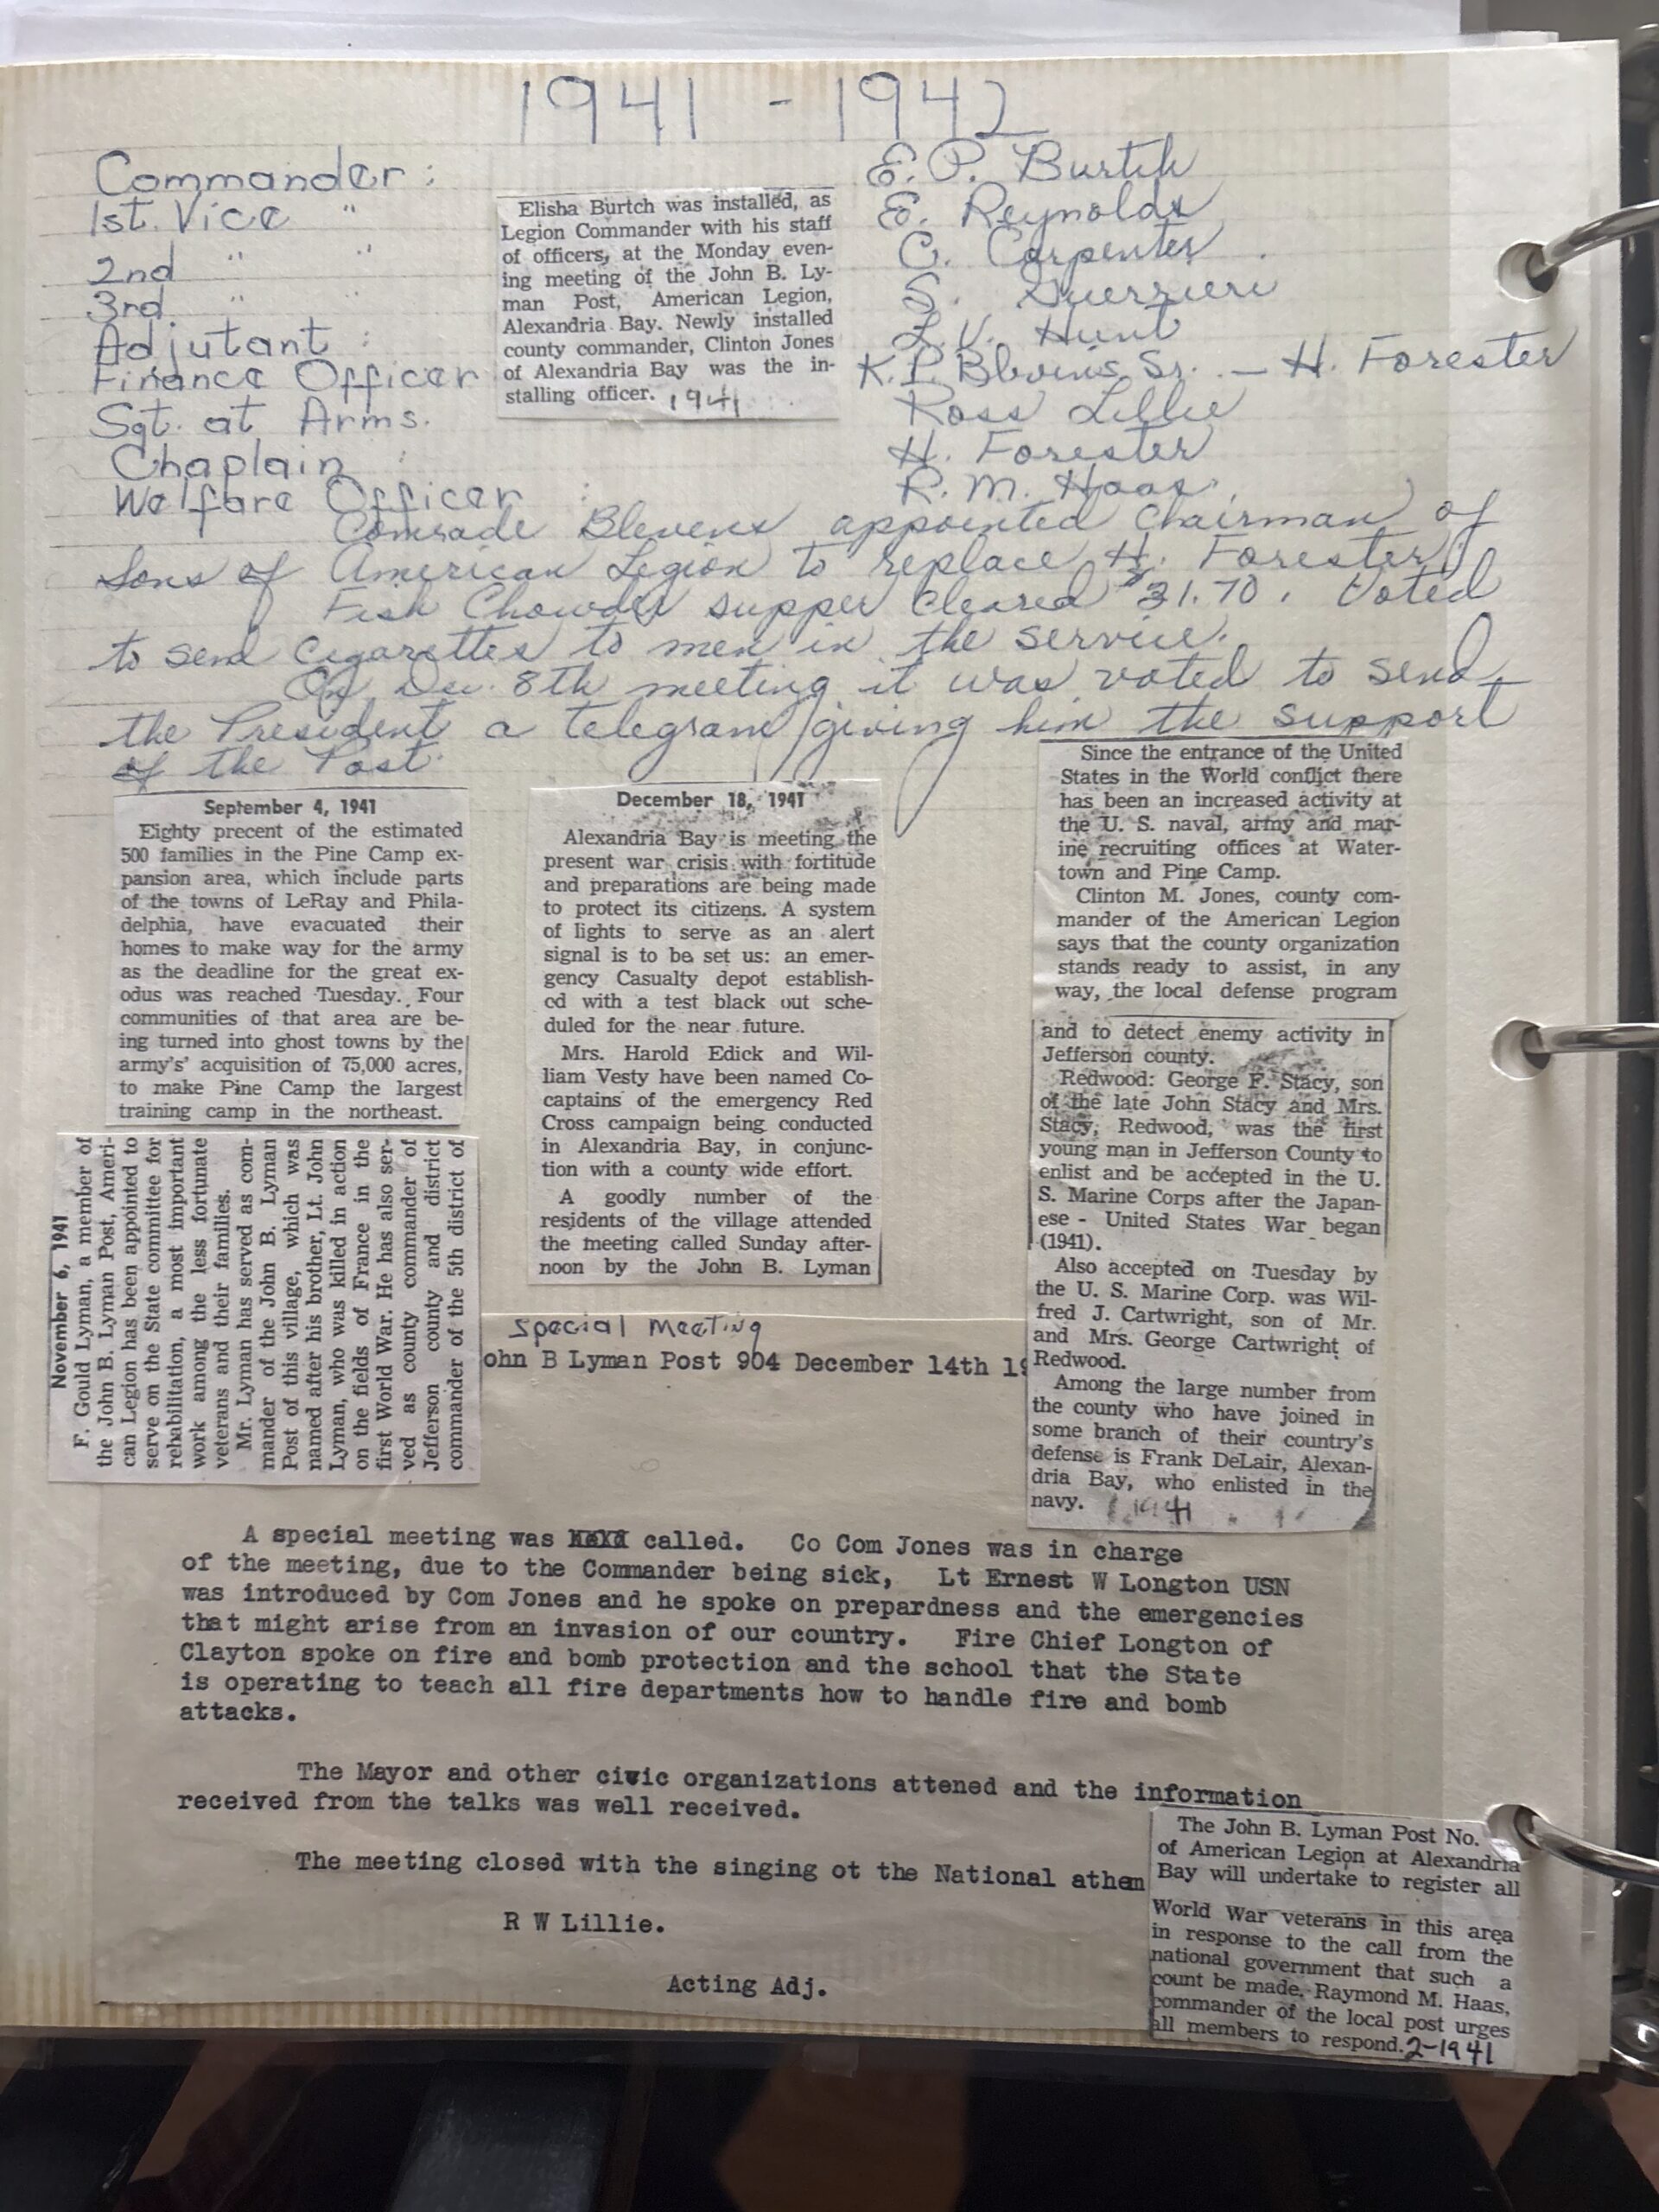 1941 - 1942
Commander :
1st. Vice "
2nd " "
3rd " "
Adjutant :
Finance Officer
Sgt. at Arms.
Chaplain :
Welfare Officer :
E. P. Burtch
E. Reynolds
C. Carpenter
S. Guerrieri
L. V. Hunt
K. P. Blevins Sr. — H. Forester
Ross Lillie
H. Forester
R. M. Haas
Elisha Burtch was installed, as
Legion Commander with his staff
of officers, at the Monday even-
ing meeting of the John B. Ly-
man Post, American Legion,
Alexandria Bay. Newly installed
county commander, Clinton Jones
of Alexandria Bay was the in-
stalling officer. 1941
Comrade Blevens appointed Chairman of
Sons of American Legion to replace H. Forester.
Fish Chowder supper cleared $31.70. Voted
to send cigarettes to men in the service.
On Dec. 8th meeting it was voted to send
the President a telegram giving him the support
of the Post.
September 4, 1941
Eighty precent of the estimated
500 families in the Pine Camp ex-
pansion area, which include parts
of the towns of LeRay and Phila-
delphia, have evacuated their
homes to make way for the army
as the deadline for the great ex-
odus was reached Tuesday. Four
communities of that area are be-
ing turned into ghost towns by the
army's' acquisition of 75,000 acres,
to make Pine Camp the largest
training camp in the northeast.
November 6, 1941
F. Gould Lyman, a member of
the John B. Lyman Post, Ameri-
can Legion has been appointed to
serve on the State committee for
rehabilitation, a most important
work among the less fortunate
veterans and their families.
Mr. Lyman has served as com-
mander of the John B. Lyman
Post of this village, which was
named after his brother, Lt. John
Lyman, who was killed in action
on the fields of France in the
first World War. He has also ser-
ved as county commander of
Jefferson county and district
commander of the 5th district of
December 18, 1941
Alexandria Bay is meeting the
present war crisis with fortitude
and preparations are being made
to protect its citizens. A system
of lights to serve as an alert
signal is to be set us: an emer-
gency Casualty depot establish-
ed with a test black out sche-
duled for the near future.
Mrs. Harold Edick and Wil-
liam Vesty have been named Co-
captains of the emergency Red
Cross campaign being conducted
in Alexandria Bay, in conjunc-
tion with a county wide effort.
A goodly number of the
residents of the village attended
the meeting called Sunday after-
noon by the John B. Lyman
Since the entrance of the United
States in the World conflict there
has been an increased activity at
the U. S. naval, army and mar-
ine recruiting offices at Water-
town and Pine Camp.
Clinton M. Jones, county com-
mander of the American Legion
says that the county organization
stands ready to assist, in any
way, the local defense program
and to detect enemy activity in
Jefferson county.
Redwood: George F. Stacy, son
of the late John Stacy and Mrs.
Stacy, Redwood, was the first
young man in Jefferson County to
enlist and be accepted in the U.
S. Marine Corps after the Japan-
ese - United States War began
(1941).
Also accepted on Tuesday by
the U. S. Marine Corp. was Wil-
fred J. Cartwright, son of Mr.
and Mrs. George Cartwright of
Redwood.
Among the large number from
the county who have joined in
some branch of their country's
defense is Frank DeLair, Alexan-
dria Bay, who enlisted in the
navy. 1941
Special Meeting
ohn B Lyman Post 904 December 14th 19
A special meeting was held called. Co Com Jones was in charge
of the meeting, due to the Commander being sick, Lt Ernest W Longton USN
was introduced by Com Jones and he spoke on prepardness and the emergencies
that might arise from an invasion of our country. Fire Chief Longton of
Clayton spoke on fire and bomb protection and the school that the State
is operating to teach all fire departments how to handle fire and bomb
attacks.
The Mayor and other civic organizations attened and the information
received from the talks was well received.
The meeting closed with the singing ot the National athem
R W Lillie.
Acting Adj.
The John B. Lyman Post No.
of American Legion at Alexandria
Bay will undertake to register all
World War veterans in this area
in response to the call from the
national government that such a
count be made, Raymond M. Haas,
commander of the local post urges
all members to respond. 2-1941